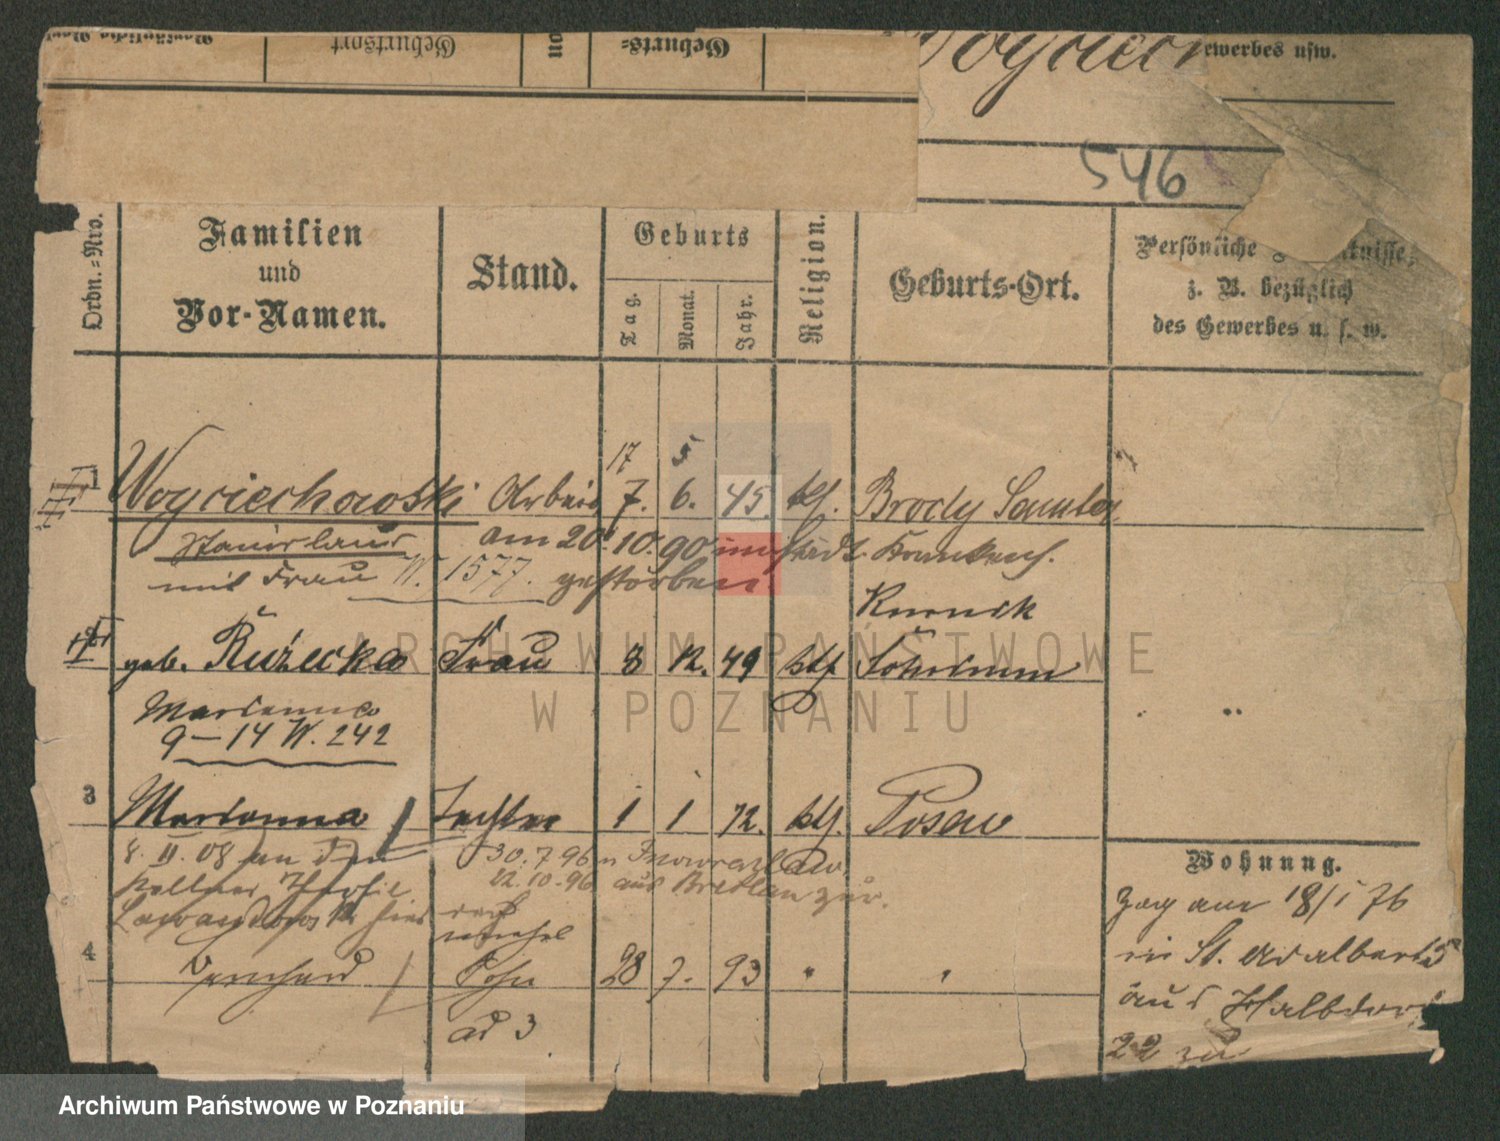 Geburtsort
Geburts-
ewerbes usw.
546
Ordn.-Nro.
Familien
und
Vor-Namen.
Stand.
Geburts
Tag.
Monat.
Jahr.
Religion.
Geburts-Ort.
Persönliche
z. B. bezüglich
des Gewerbes u. s. w.
17 5
1 Woyciechowski Arbeit 7. 6. 45. kt. Brody Samter
Stanislaus am 20. 10. 90 im städt. Krankenh.
mit Frau W. 1577. gestorben.
Kurnik
geb. Ruzecka Frau 8 12. 49 kth Schrimm
Marianna
9-14 W. 242
3 Marianna Tochter 1 1 72. kth. Posen
Wohnung.
8. II. 08 an den 30. 7. 96 n Inowrazlaw.
Kellner 12. 10. 96 aus Breslau zur.
hier
zog am 18/1 76
4 Sohn 28 7. 93 " "
in St. Adalbert 5
aus Halbdorf
ad 3
22 zu
ARCHIWUM PAŃSTWOWE
W POZNANIU
Archiwum Państwowe w Poznaniu